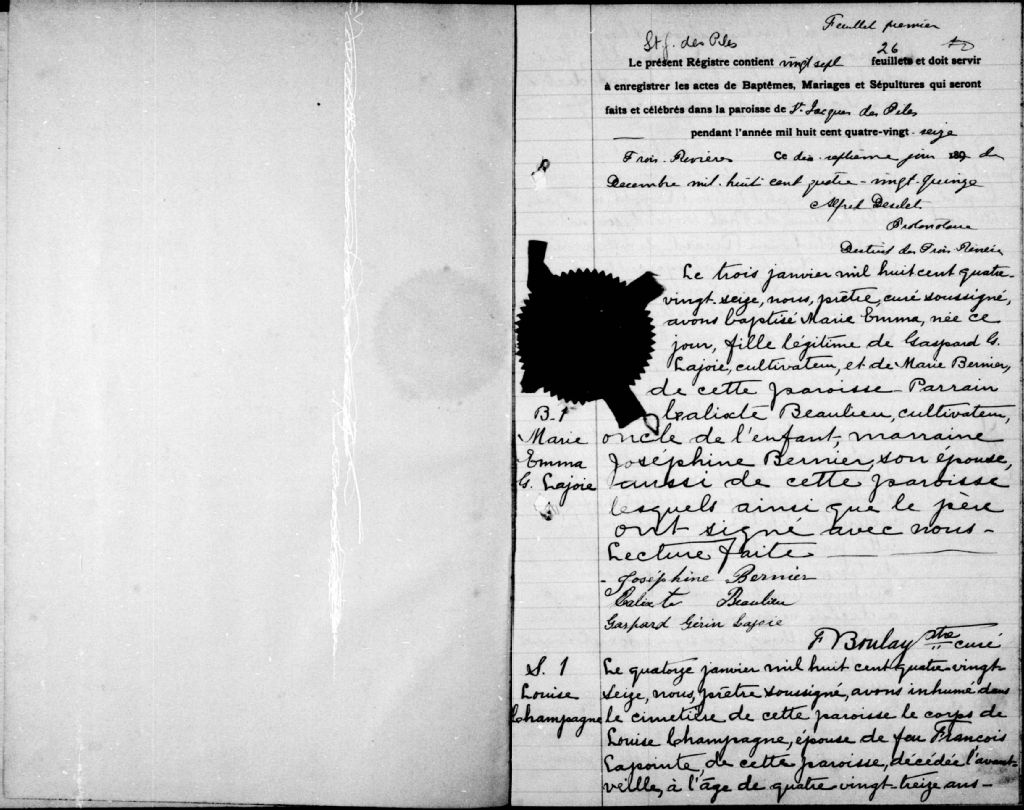 Feuillet premier
St J. des Piles
26
Le présent Régistre contient vingt sept feuillets et doit servir
à enregistrer les actes de Baptêmes, Mariages et Sépultures qui seront
faits et célébrés dans la paroisse de St. Jacques des Piles
pendant l'année mil huit cent quatre-vingt - seize
Trois-Rivières Ce dix-septième jour 189 de
Decembre mil-huit cent quatre-vingt-quinze
Alfred Desilet
Protonotaire
District des Trois Rivières
Le trois janvier mil huit cent quatre-
vingt-seize, nous, prêtre, curé soussigné,
avons baptisé Marie Emma, née ce
jour, fille légitime de Gaspard G.
Lajoie, cultivateur, et de Marie Bernier,
de cette paroisse Parrain
B-1
Calixte Beaulieu, cultivateur,
Marie
oncle de l'enfant, marraine
Emma
Joséphine Bernier, son épouse,
G. Lajoie
aussi de cette paroisse
lesquels ainsi que le père
ont signé avec nous-
Lecture faite
- Joséphine Bernier
Calixte Beaulieu
Gaspard Gérin Lajoie
F Boulay ptre curé
S. 1
Le quatorze janvier mil huit cent quatre-vingt-
Louise
seize, nous, prêtre soussigné, avons inhumé dans
Champagne
le cimetière de cette paroisse le corps de
Louise Champagne, épouse de feu François
Lapointe, de cette paroisse, décédée l'avant-
veille, à l'âge de quatre vingt-treize ans-